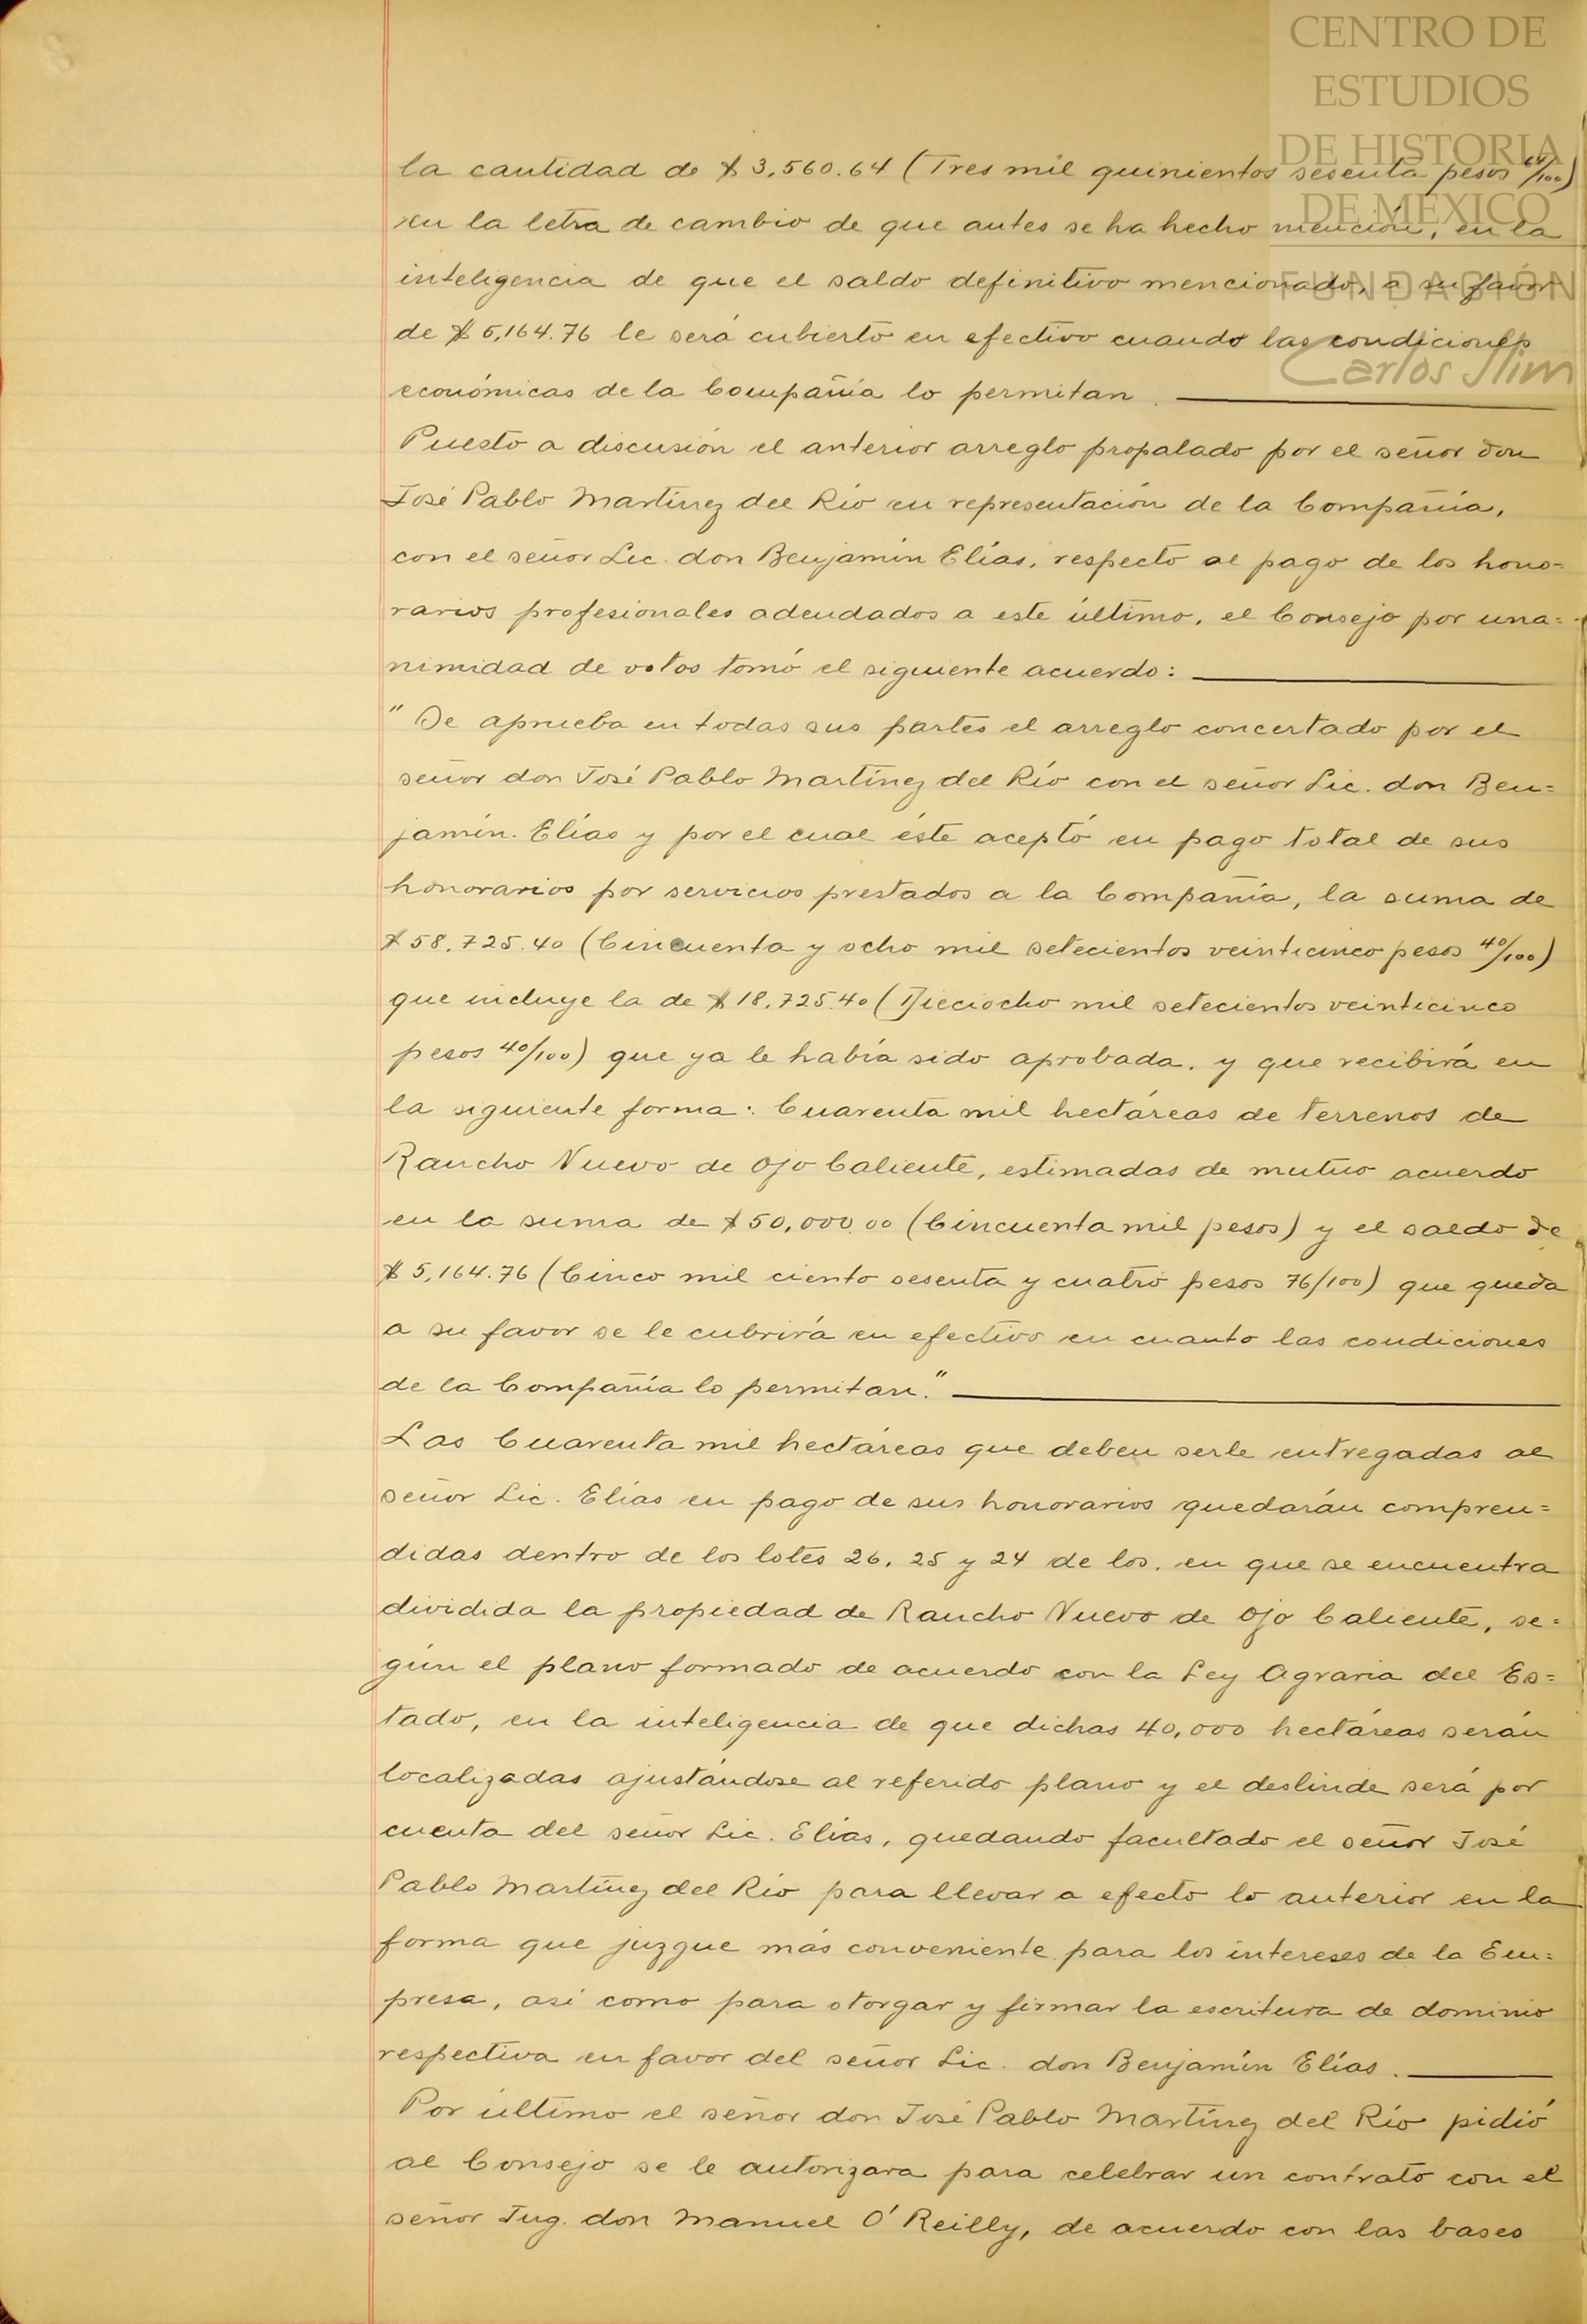 CENTRO DE
ESTUDIOS
DE HISTORIA
DE MÉXICO
FUNDACIÓN
Carlos Slim
la cantidad de $ 3,560.64 (Tres mil quinientos sesenta pesos 64/100)
en la letra de cambio de que antes se ha hecho mención, en la
inteligencia de que el saldo definitivo mencionado, a su favor
de $ 5,164.76 le será cubierto en efectivo cuando las condiciones
económicas de la Compañía lo permitan.
Puesto a discusión el anterior arreglo propalado por el señor don
José Pablo Martínez del Río en representación de la Compañía,
con el señor Lic. don Benjamín Elías, respecto al pago de los hono=
rarios profesionales adeudados a este último, el Consejo por una=
nimidad de votos tomó el siguiente acuerdo:
"Se aprueba en todas sus partes el arreglo concertado por el
señor don José Pablo Martínez del Río con el señor Lic. don Ben=
jamín. Elías y por el cual éste aceptó en pago total de sus
honorarios por servicios prestados a la Compañía, la suma de
$ 58.725.40 (Cincuenta y ocho mil setecientos veinticinco pesos 40/100)
que incluye la de $ 18.725.40 (Dieciocho mil setecientos veinticinco
pesos 40/100) que ya le había sido aprobada, y que recibirá en
la siguiente forma: Cuarenta mil hectáreas de terrenos de
Rancho Nuevo de Ojo Caliente, estimadas de mutuo acuerdo
en la suma de $ 50,000.00 (Cincuenta mil pesos) y el saldo de
$ 5,164.76 (Cinco mil ciento sesenta y cuatro pesos 76/100) que queda
a su favor se le cubrirá en efectivo en cuanto las condiciones
de la Compañía lo permitan."
Las Cuarenta mil hectáreas que deben serle entregadas al
señor Lic. Elías en pago de sus honorarios quedarán compren=
didas dentro de los lotes 26, 25 y 24 de los, en que se encuentra
dividida la propiedad de Rancho Nuevo de Ojo Caliente, se=
gún el plano formado de acuerdo con la Ley Agraria del Es=
tado, en la inteligencia de que dichas 40,000 hectáreas serán
localizadas ajustándose al referido plano y el deslinde será por
cuenta del señor Lic. Elías, quedando facultado el señor José
Pablo Martínez del Río para llevar a efecto lo anterior en la
forma que juzgue más conveniente para los intereses de la Em=
presa, así como para otorgar y firmar la escritura de dominio
respectiva en favor del señor Lic. don Benjamín Elías.
Por último el señor don José Pablo Martínez del Río pidió
al Consejo se le autorizara para celebrar un contrato con el
señor Ing. don Manuel O'Reilly, de acuerdo con las bases